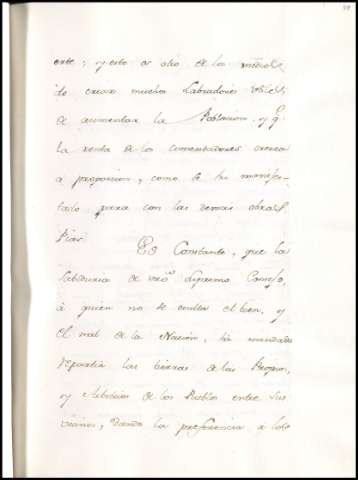 este; y esto es otro de los medios
de crear muchos Labradores utiles,
de aumentar la Poblacion, y q.e
la renta de los comendadores crezca
a proporcion, como se ha manifes-
tado para con las demas obras
Pias.
Es Constante, que la
Sabiduria de vro. Supremo Consejo,
á quien no se oculta el bien, y
el mal de la Nacion, ha mandado
repartir las tierras de los Propios,
y Arbitrios de los Pueblos entre sus
vecinos, dando la preferencia a los